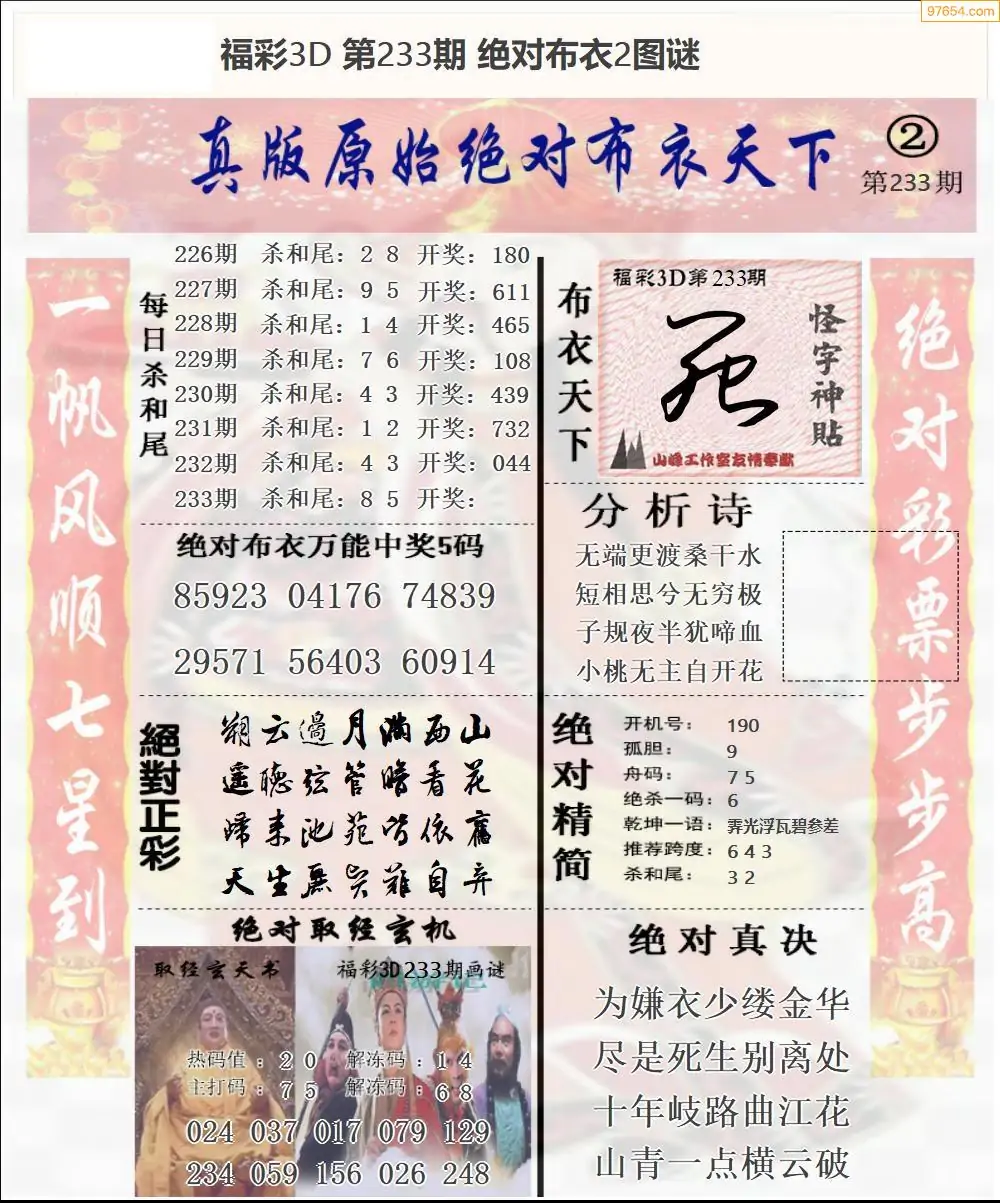 97654.com
福彩3D 第233期 绝对布衣2图谜
真版原始绝对布衣天下
②
第233期
一帆风顺七星到
每日杀和尾
226期 杀和尾: 2 8 开奖: 180
227期 杀和尾: 9 5 开奖: 611
228期 杀和尾: 1 4 开奖: 465
229期 杀和尾: 7 6 开奖: 108
230期 杀和尾: 4 3 开奖: 439
231期 杀和尾: 1 2 开奖: 732
232期 杀和尾: 4 3 开奖: 044
233期 杀和尾: 8 5 开奖:
绝对布衣万能中奖5码
85923 04176 74839
29571 56403 60914
絕對正彩
朔云邊月满西山
遥聴弦管暗看花
歸来池苑皆依舊
天生麗质難自弃
绝对取经玄机
取经玄天书
福彩3D233期画谜
热码值 : 2 0 解冻码 : 1 4
主打码 : 7 5 解冻码 : 6 8
024 037 017 079 129
234 059 156 026 248
布衣天下
福彩3D第233期
怪字神贴
山峰工作室友情奉献
分析诗
无端更渡桑干水
短相思兮无穷极
子规夜半犹啼血
小桃无主自开花
绝对精简
开机号: 190
孤胆: 9
舟码: 7 5
绝杀一码: 6
乾坤一语: 霁光浮瓦碧参差
推荐跨度: 6 4 3
杀和尾: 3 2
绝对真决
为嫌衣少缕金华
尽是死生别离处
十年岐路曲江花
山青一点横云破
绝对彩票步步高